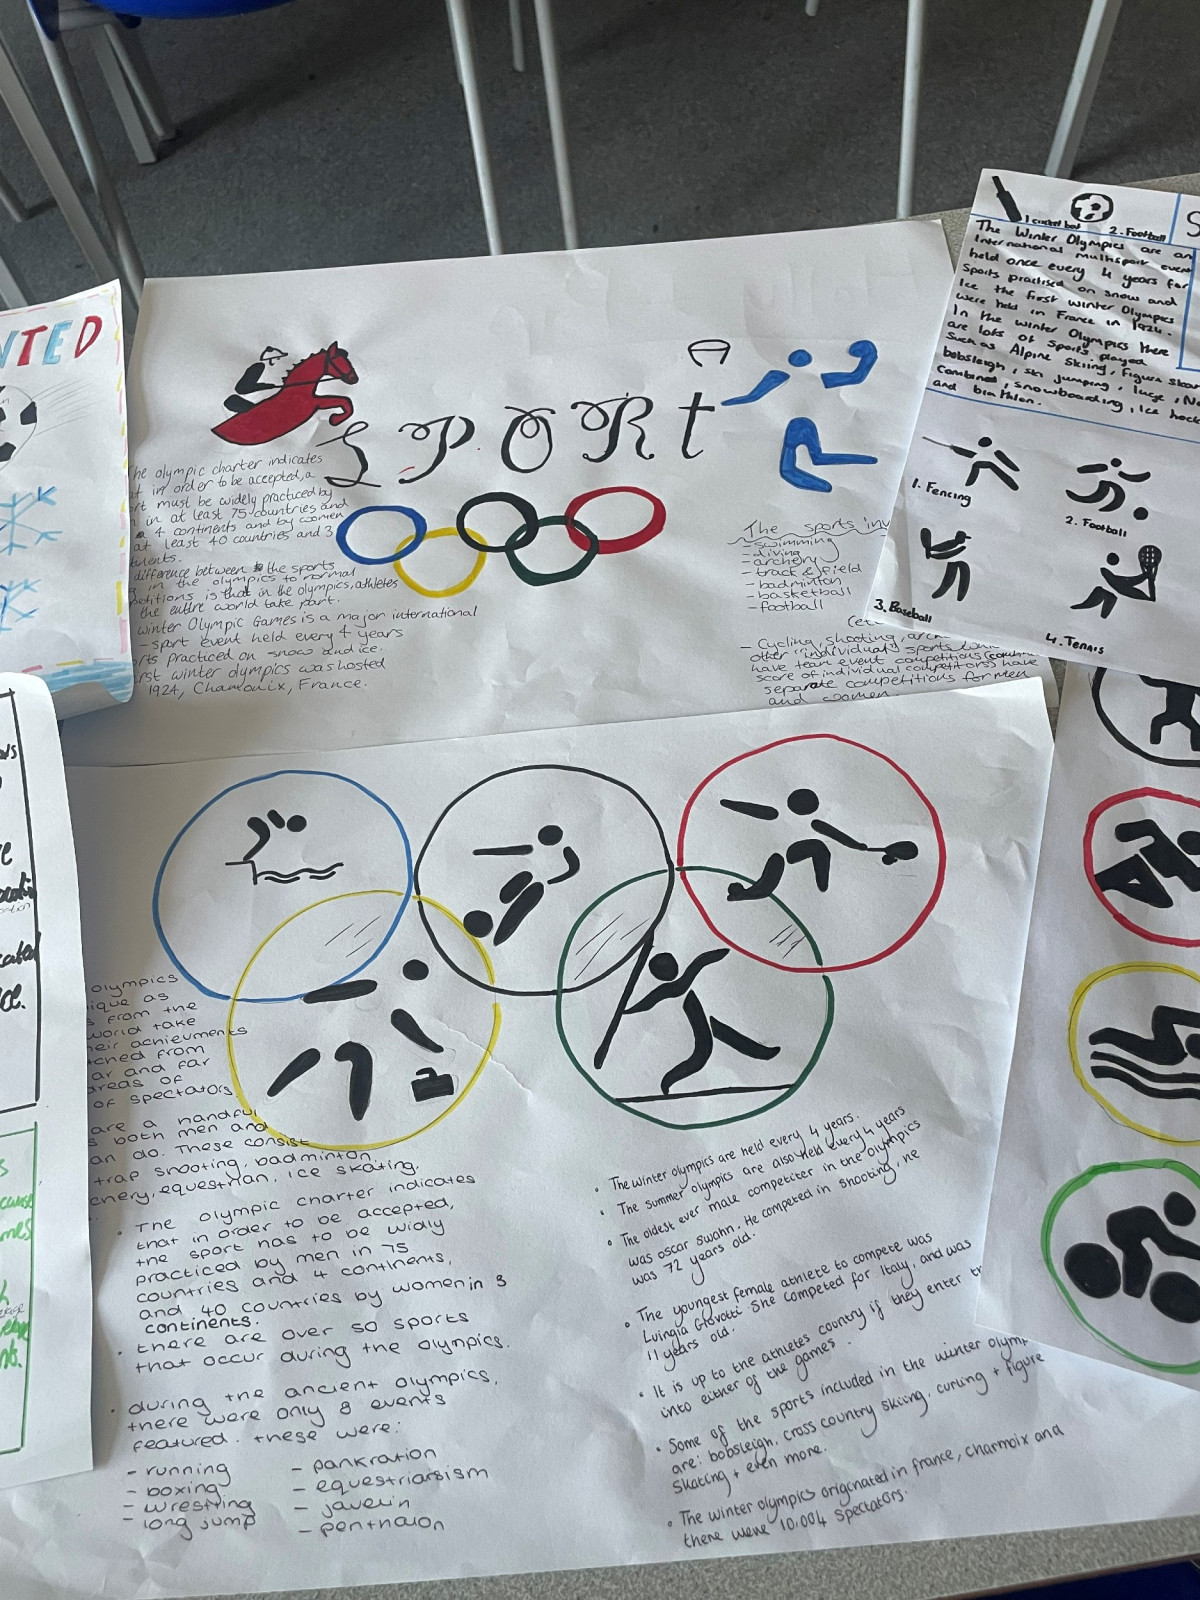 NTED
SPORt
he olympic charter indicates
at in order to be accepted, a
rt must be widely practiced by
in at least 75 countries and
4 continents and by women
at least 40 countries and 3
difference between the sports
in the olympics to normal
petitions is that in the olympics, athletes
the entire world take part.
winter Olympic Games is a major international
- sport event held every 4 years
rts practiced on snow and ice.
rst winter olympics was hosted
1924, Chamonix, France.
The sports inv
- swimming
- diving
- archery
- track & field
- badminton
- basketball
- football
(etc
- Cycling, shooting, arch
other "individual" sports
have team event competitions
score of individual competitors) have
separate competitions for men
and women.
1 cricket bat 2. Football
The Winter Olympics are an
International multisport event
held once every 4 years for
Sports practised on snow and
Ice the first winter Olympics
were held in France in 1924.
In the winter Olympics there
are lots of sports played
such as Alpine Skiing, Figure skat
bobsleigh, ski jumping, luge, No
Combined, snowboarding, Ice hock
and biathlon.
1. Fencing
2. Football
3. Baseball
4. Tennis
olympics
ique as
s from the
world take
heir achievments
ched from
ar and far
areas of
of spectators.
are a handful
s both men and
an do. These consist
trap shooting, badminton,
chery, equestrian, ice skating.
• The olympic charter indicates
that in order to be accepted,
the sport has to be widly
practiced by men in 75
countries and 4 continents,
and 40 countries by women in 3
continents.
• there are over 50 sports
that occur during the olympics.
• during the ancient olympics,
there were only 8 events
featured. these were:
- running
- boxing
- wrestling
- long jump
- pankration
- equestriarsism
- javelin
- penthalon
• The winter olympics are held every 4 years.
• The summer olympics are also held every 4 years
• The oldest ever male competiter in the olympics
was oscar swahn. He competed in shooting, he
was 72 years old.
• The youngest female athlete to compete was
Luingia Giavotti She competed for Italy, and was
11 years old.
• It is up to the athletes country if they enter th
into either of the games.
• Some of the sports included in the winter olymp
are: bobsleigh, cross country skiing, curling + figure
skating + even more.
• The winter olympics originated in france, charmoix and
there were 10,004 spectators.